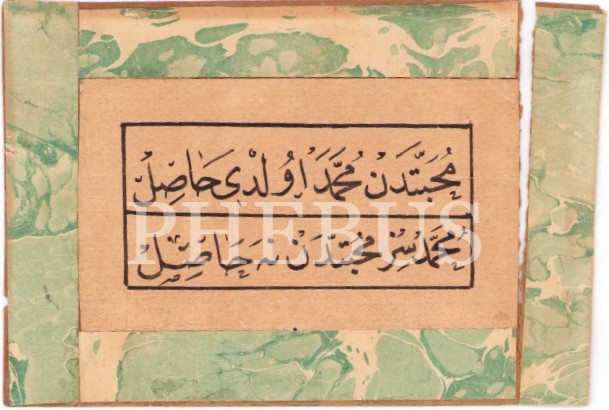 مُحَبَّتدَنْ مُحَمَّدَ اوُلْدِى حَاصِلْ
مُحَمَّدْسِزْ مُحَبَّتدَنْ نَه حَاصِلْ
PHEBUS